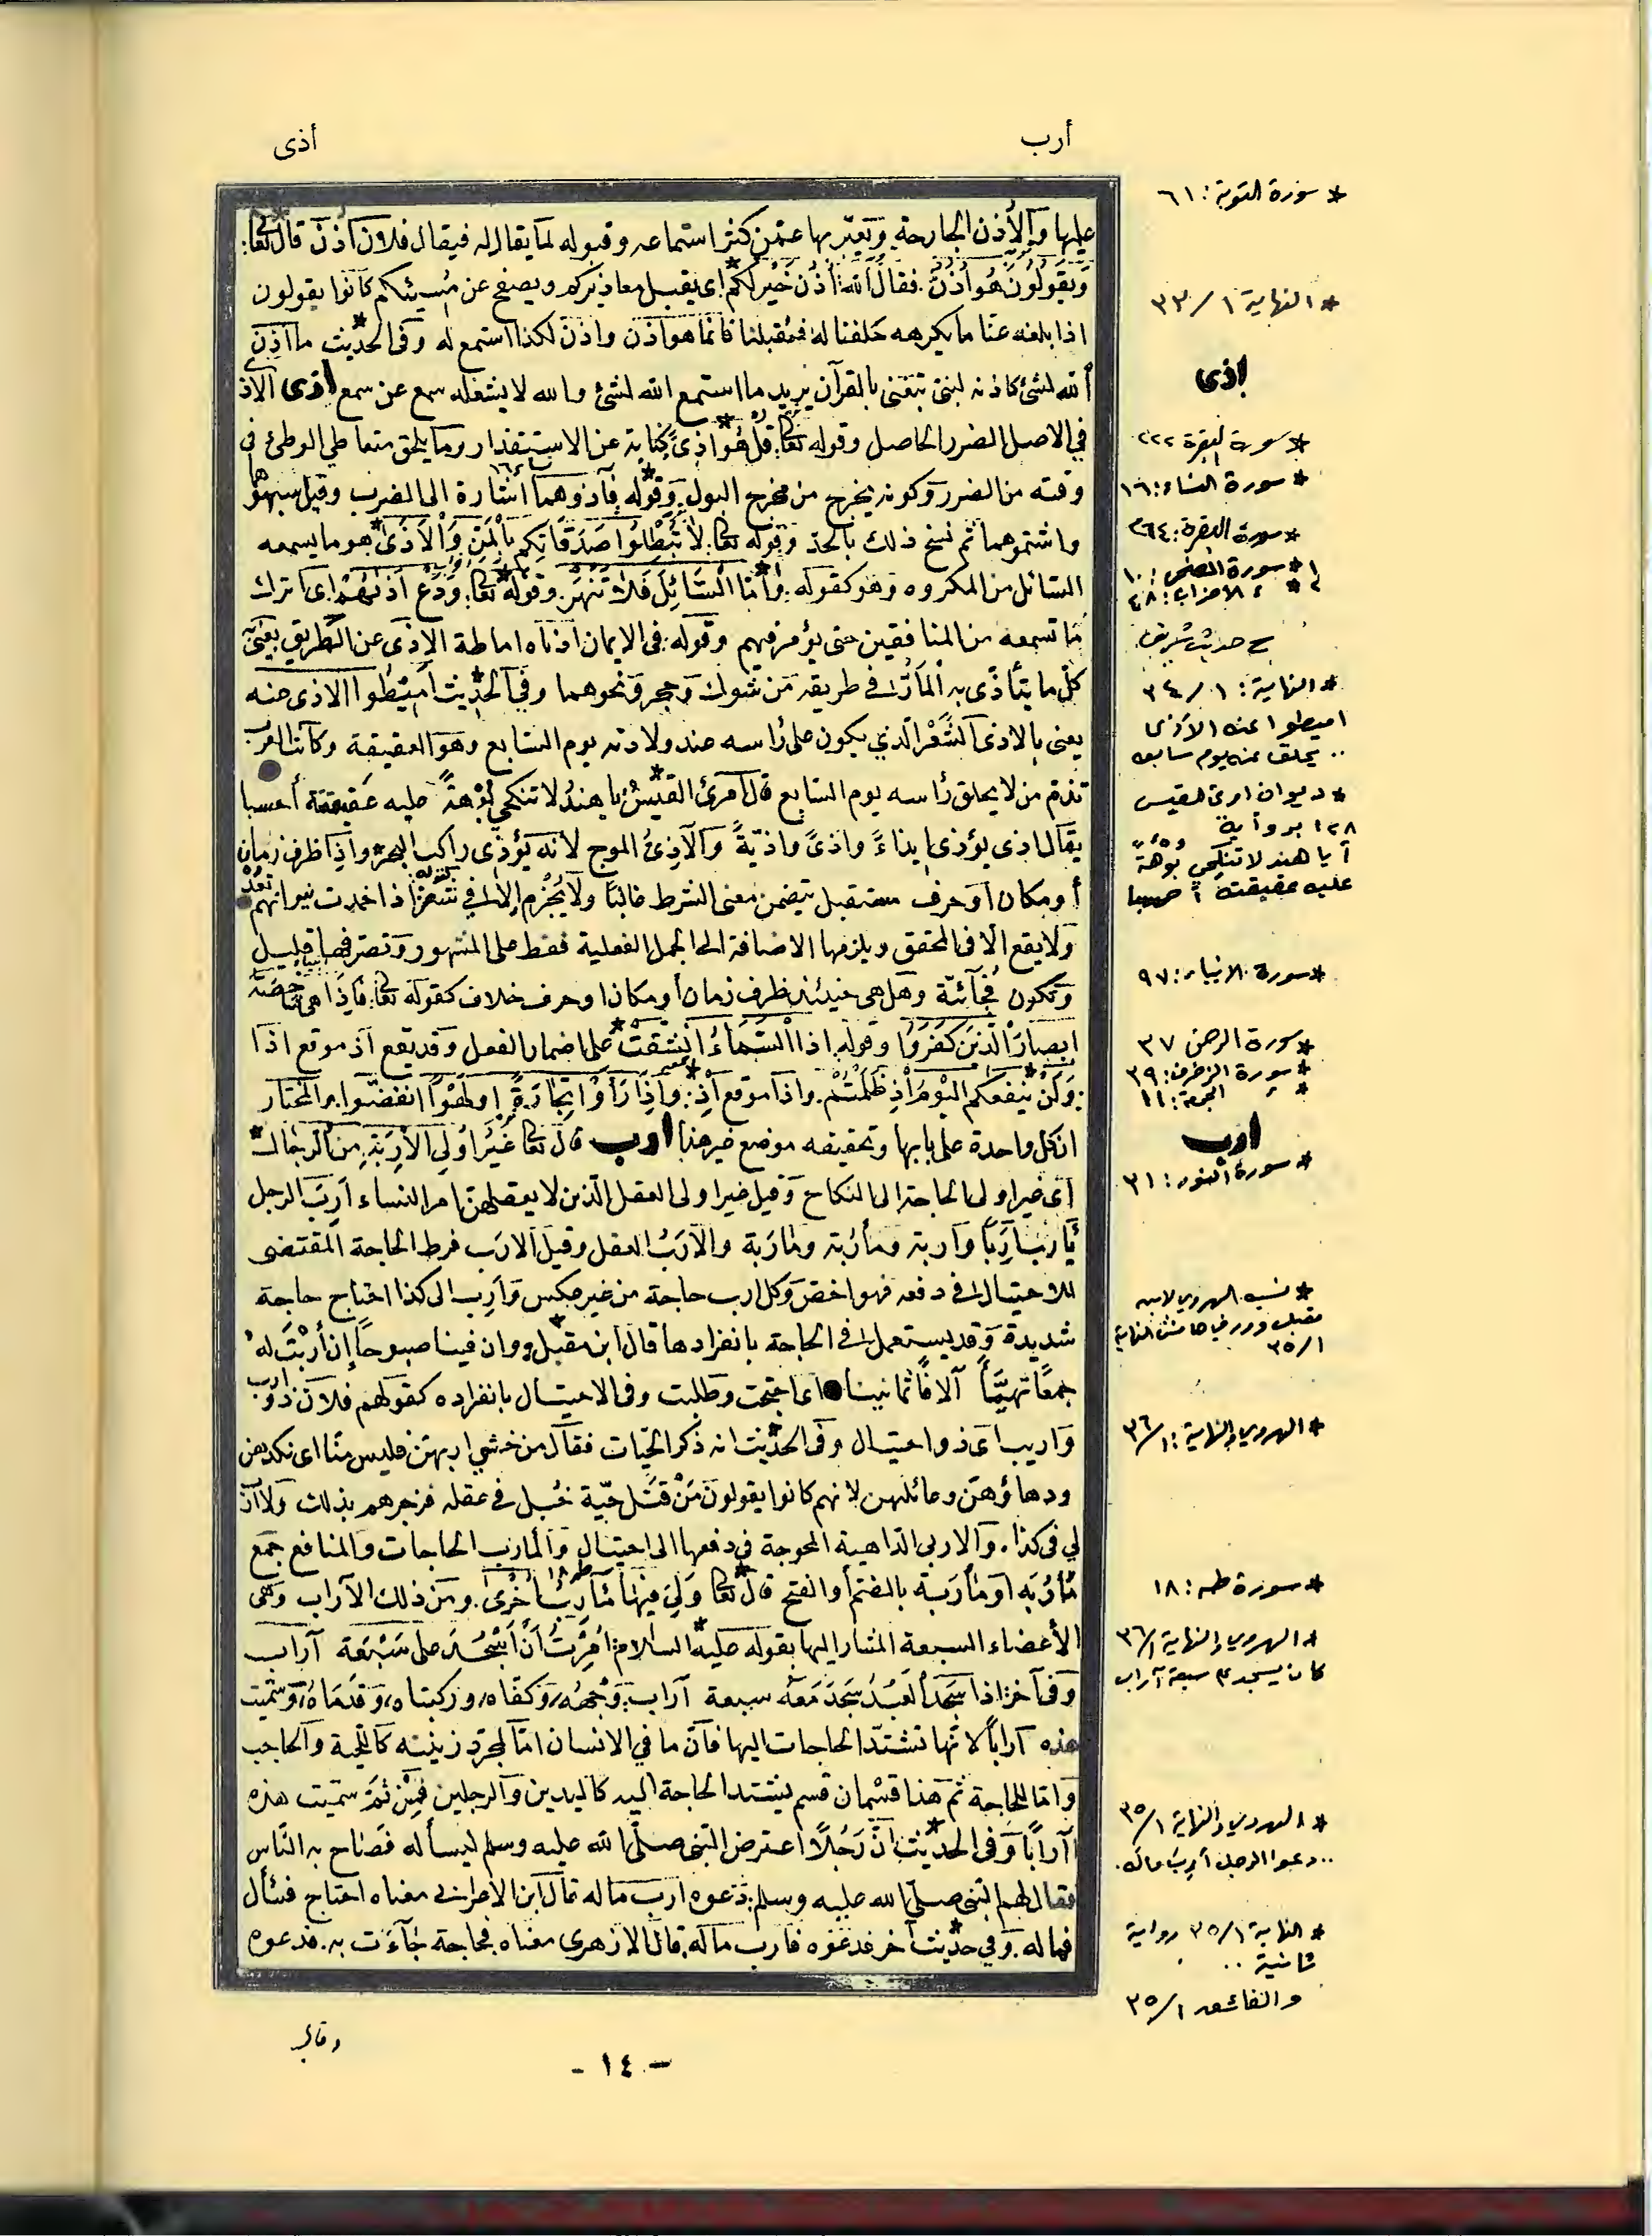 أرب
أذى
عليها والأذن الجارحة ويعبّر بها عمّن كثر استماعه وقبوله لما يقال له فيقال فلان أذن قال تعالى:
ويقولون هو أذن. فقال الله: أذن خير لكم اى يقبل معاذيركم ويصفح عن مسيئكم كانوا يقولون
اذا بلغه عنّا ما يكرهه حلفنا له فيقبلنا فانما هو اذن واذن لكذا استمع له وفى الحديث ما اذن
الله لشئ كاذنه لنبىّ يتغنى بالقرآن يريد ما استمع الله لشئ والله لا يشغله سمع عن سمع اذى الاذ
في الاصل الضرر الحاصل وقوله تعالى: قل هو اذىً كناية عن الاستقذار وما يلحق متعاطي الوطئ فى
وقته من الضرر وكونه يخرج من مخرج البول. وقوله فآذوهما اشارة الى الضرب وقيل سبوهما
واشتموهما ثم نسخ ذلك بالحدّ وقوله تعالى: لا تبطلوا صدقاتكم بالمنّ والاذى هو ما يسمعه
السائل من المكروه وهو كقوله: وأما السائل فلا تنهر. وقوله تعالى: ودع اذاهم اى اترك
ما تسمعه من المنافقين حتى يؤمر فيهم وقوله: فى الايمان ادناه اماطة الاذى عن الطريق يعنى
كلّ ما يتأذّى به المارّ فى طريقه من شوك وحجر ونحوهما وفى الحديث اميطوا الاذى عنه
يعنى بالاذى الشعر الّذي يكون على رأسه عند ولادته يوم السابع وهو العقيقة وكانت العرب
تذم من لا يحلق رأسه يوم السابع قال امرئ القيس: يا هند لا تنكحي بوهةً عليه عقيقته أحسبا
يقال اذى يؤذى ايذاءً واذىً واذيّةً والآذىّ الموج لانه يؤذى راكب البحر واذا ظرف زمان
أو مكان او حرف مستقبل يتضمن معنى الشرط غالبًا ولا يجزم الا فى شعر كقوله اذا خمدت نيرانهم تقد
ولا يقع الّا فى المحقق ويلزمها الاضافة الى الجمل الفعلية فقط على المشهور وتصرفها قليل
وتكون فجآئية وهل هى حينئذ ظرف زمان أو مكان او حرف خلاف كقوله تعالى: فاذا هى شاخصة
ابصار الّذين كفروا وقوله: اذا السماء انشقت على اضمار الفعل وقد يقع اذ موقع اذا
: ولن ينفعكم اليوم اذ ظلمتم. واذا موقع اذ: واذا رأوا تجارة او لهوًا انفضّوا. والمختار
ان كل واحدة على بابها وتحقيقه موضع غير هذا ارب قال تعالى غير اولي الاربة من الرجال
اى غير اولى الحاجة الى النكاح وقيل غير اولى العقل الّذين لا يعقلون امر النساء ارب الرجل
يأرب اربًا واربة ومأربة ومأربة والارب العقل وقيل الارب فرط الحاجة المقتضى
للاحتيال فى دفعه فهو اخص وكل ارب حاجة من غير عكس وارب الى كذا احتاج حاجة
شديدة وقد يستعمل فى الحاجة بانفرادها قال ابن مقبل: وان فينا صبوحًا إن أربت له
جمعًا تهيّأ آلافًا ثمانينا اى احتجت وطلبت وفى الاحتيال بانفراده كقولهم فلان ذو ارب
واريب اى ذو احتيال وفى الحديث انه ذكر الحيّات فقال من خشي اربهن فليس منّا اى نكدهن
ودهاؤهنّ وغائلهن لانهم كانوا يقولون من قتل حيّة خبل فى عقله فزجرهم بذلك ولا ارب
لي فى كذا. والاربى الداهية المحوجة في دفعها الى احتيال والمأرب الحاجات والمنافع جمع
مأربه او مأربة بالضم أو الفتح قال تعالى ولى فيها مآرب أخرى. ومن ذلك الآراب وهى
الأعضاء السبعة المشار اليها بقوله عليه السلام: امرت أن أسجد على سبعة آراب
وفى آخر: اذا سجد العبد سجد معه سبعة آراب: وجهه، وكفاه، وركبتاه، وقدماه، وسمّيت
هذه آرابًا لانّها تشتدّ الحاجات اليها فانّ ما في الانسان امّا لمجرد زينته كاللحية والحاجب
وامّا للحاجة ثم هذا قسمان قسم يشتد الحاجة اليه كاليدين والرجلين فمن ثمّ سمّيت هذه
آرابًا وفى الحديث: انّ رجلاً اعترض النبى صلى الله عليه وسلم ليسأله فصاح به النّاس
فقال لهم النبى صلى الله عليه وسلم: دعوه ارب ماله قال ابن الأعرابى معناه احتاج فسأل
فماله. وفي حديث آخر فدعوه فأرب ماله. قال الازهرى معناه. فحاجة جاءت به. فدعوه
* سورة التوبة: ٦١
* النهاية ١/٣٣
اذى
* سورة البقرة ٢٢٢
* سورة النساء: ١٦
* سورة البقرة: ٢٦٤
١* سورة الضحى: ١٠
٢* الاحزاب: ٤٨
ح حديث شريف.
* النهاية: ١/٣٤
اميطوا عنه الأذى
.. يحلق عنه يوم سابعه
* ديوان امرئ القيس
١٢٨ برواية
أيا هند لا تنكحي بوهةً
عليه عقيقته أحسبا
* سورة الانبياء: ٩٧
* سورة الرحمن ٣٧
* سورة الزخرف: ٣٩
* الجمعة: ١١
ارب
* سورة النور: ٣١
* نسبه الهروي لابن
مقبل وورد في هامش النهاية
١/٣٥
* الهروي والنهاية: ١/٣٦
* سورة طه: ١٨
* الهروي والنهاية ١/٣٦
كان يسجد على سبعة آراب
* الهروي والنهاية ١/٣٥
.. دعوا الرجل أرب ماله.
* النهاية ١/٣٥ رواية
ثانية ..
والفائق ١/٣٥
وقال
- ١٤ -